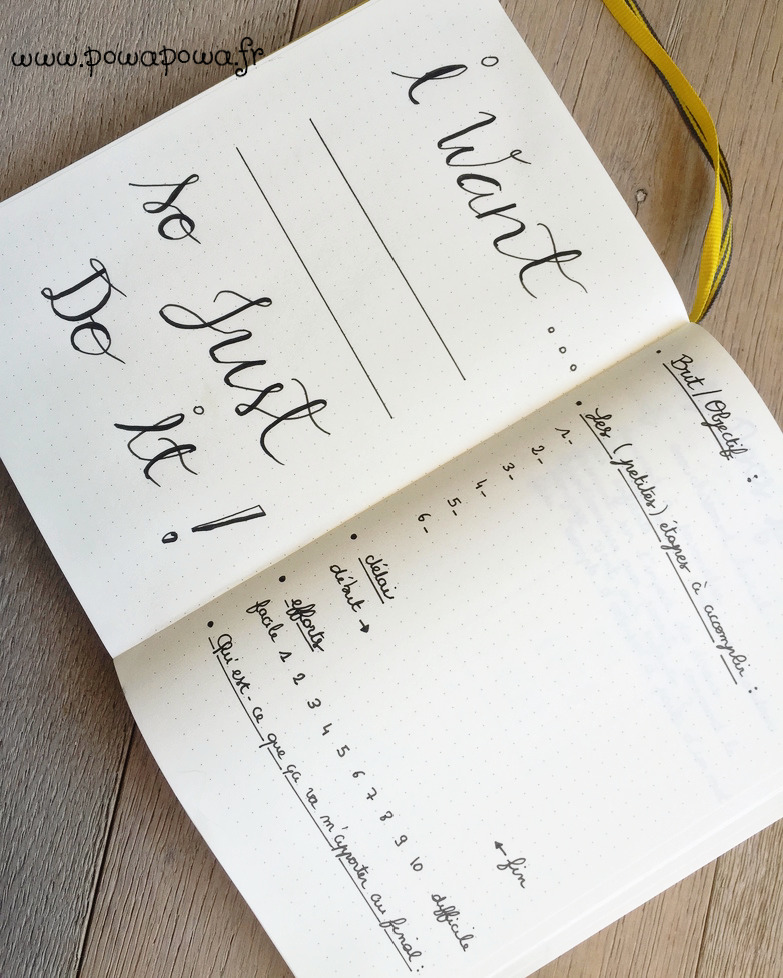 www.powapowa.fr
i Want...
so Just
Do it!
• But/Objectif :
• Les (petites) étapes à accomplir :
1-
2-
3-
4-
5-
6-
• délai
début → ← fin
• efforts
facile 1 2 3 4 5 6 7 8 9 10 difficile
• Qu'est-ce que ça va m'apporter au final :